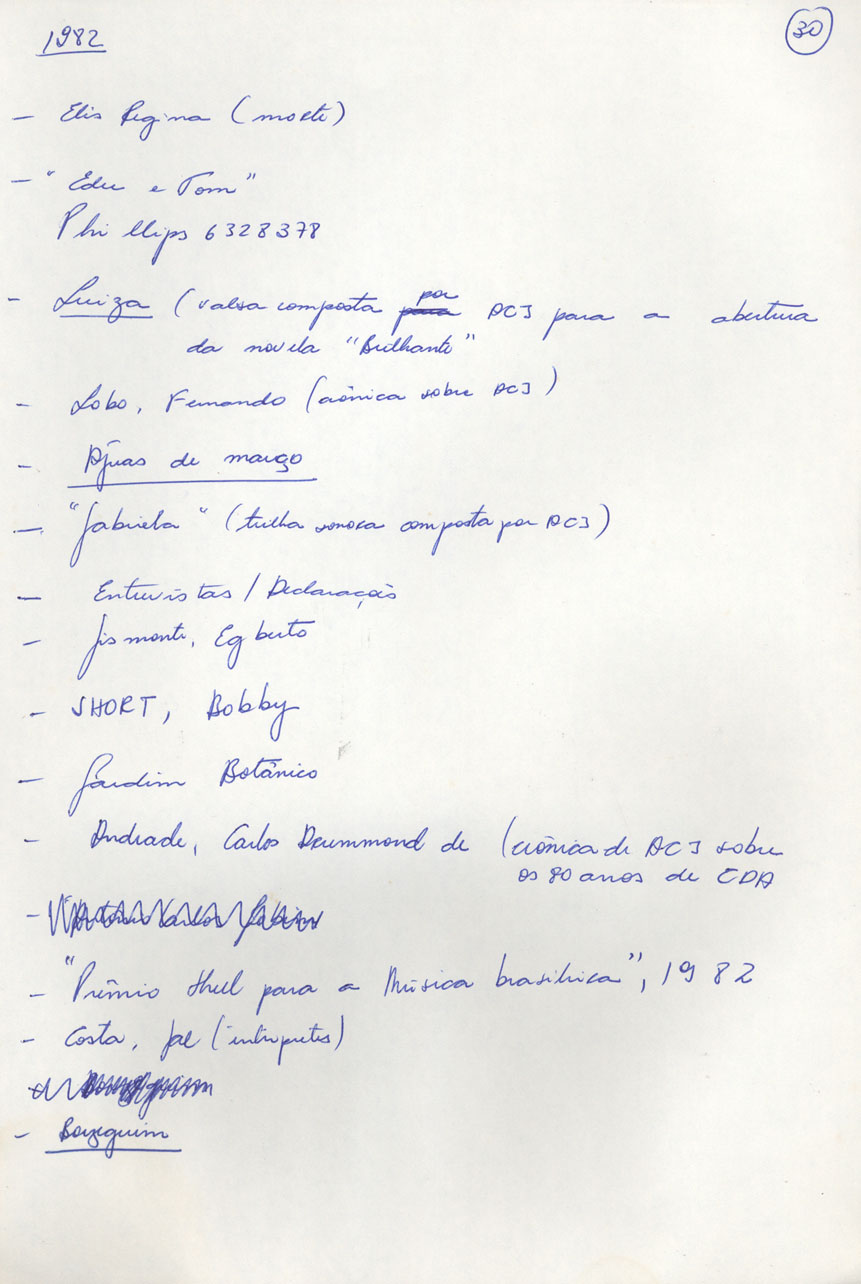 1982
30
- Elis Regina (morte)
- "Edu e Tom"
Phillips 6328378
- Luiza (valsa composta por ACJ para a abertura
da novela "Brilhante"
- Lobo, Fernando (crônica sobre ACJ)
- Águas de março
- "Gabriela" (trilha sonora composta por ACJ)
- Entrevistas / Declarações
- Gismonti, Egberto
- SHORT, Bobby
- Jardim Botânico
- Andrade, Carlos Drummond de (crônica de ACJ sobre
os 80 anos de CDA
- Antonio Carlos Jobim
- "Prêmio Shell para a Música brasileira", 1982
- Costa, Gal (intérpretes)
- Borzeguim